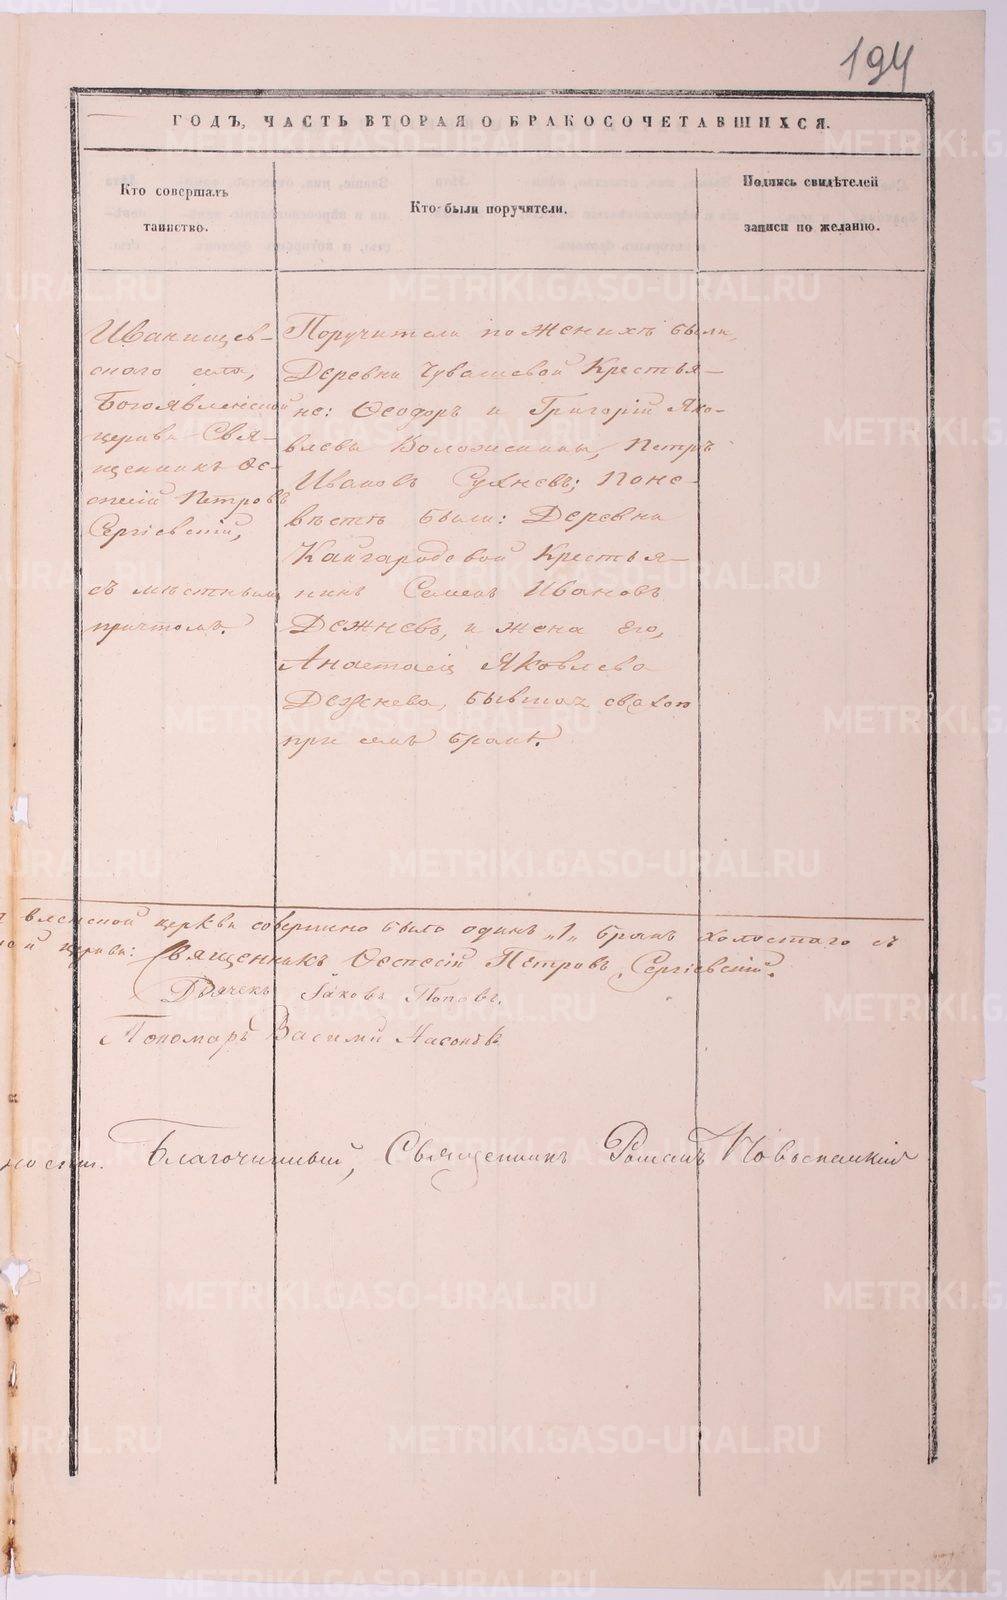 194
ГОДЪ, ЧАСТЬ ВТОРАЯ О БРАКОСОЧЕТАВШИХСЯ.
Кто совершалъ
таинство.
Кто были поручители.
Подпись свидѣтелей
записи по желанію.
Иванищев-
скаго села,
Богоявленской
церкви Свя-
щенникъ Ѳе-
спесій Петровъ
Сергіевскій,
съ мѣстнымъ
причтомъ.
Поручители по женихѣ были,
Деревни Чувашевой Крестья-
не: Ѳеодоръ и Григорій Яко-
влевы Волокитины, Петръ
Ивановъ Сухневъ; По не-
вѣстѣ были: Деревни
Кайгородовой Крестья-
нинъ Семенъ Ивановъ
Дежневъ, и жена его,
Анастасія Яковлева
Дежнева, бывшая свахою
при семъ бракѣ.
вленской церкви совершено было одинъ „1„ бракъ холостаго съ
церкви: Священникъ Ѳеспесій Петровъ Сергіевскій.
Дьячекъ Іаковъ Поповъ.
Пономарь Василій Насоновъ
Благочинный, Священникъ Романъ
METRIKI.GASO-URAL.RU